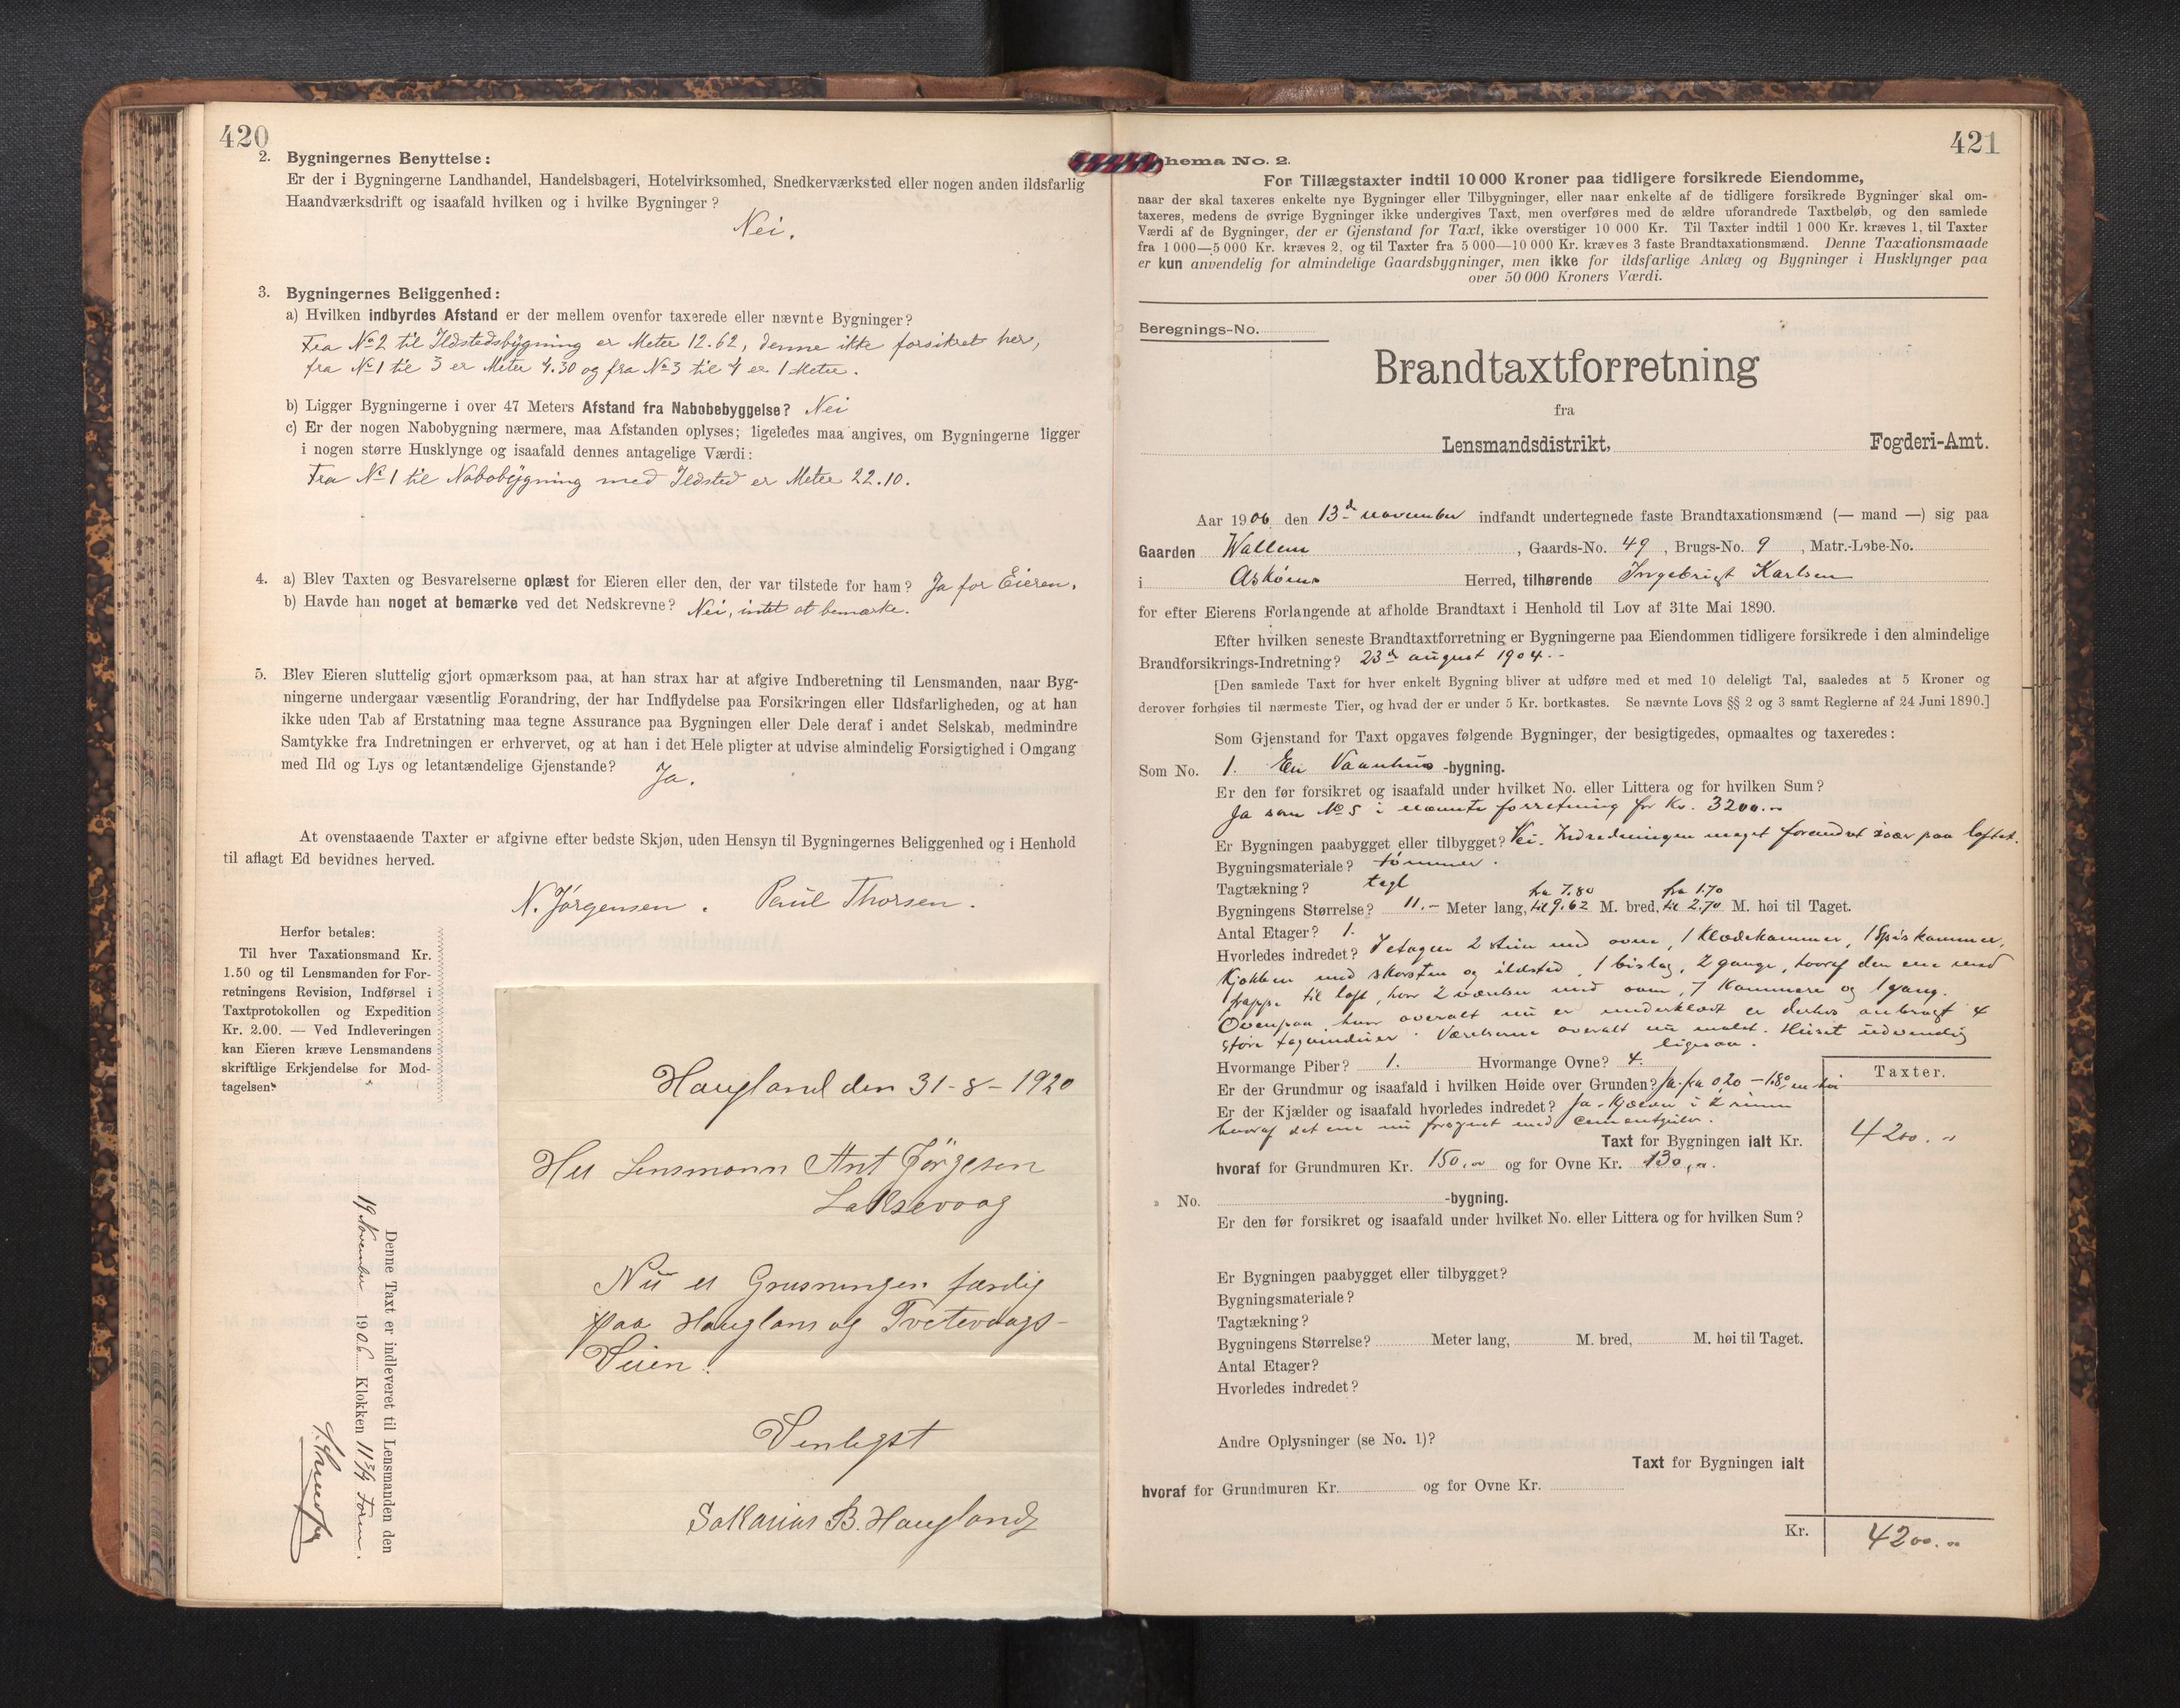 420
2. Bygningernes Benyttelse:
Er der i Bygningerne Landhandel, Handelsbageri, Hotelvirksomhed, Snedkerværksted eller nogen anden ildsfarlig
Haandværksdrift og isaafald hvilken og i hvilke Bygninger?
Nei.
3. Bygningernes Beliggenhed:
a) Hvilken indbyrdes Afstand er der mellem ovenfor taxerede eller nævnte Bygninger?
Fra No 2 til Ildstedsbygning er Meter 12.62, denne ikke forsikret her,
fra No 1 til 3 er Meter 4.30 og fra No 3 til 4 er 1 Meter.
b) Ligger Bygningerne i over 47 Meters Afstand fra Nabobebyggelse? Nei
c) Er der nogen Nabobygning nærmere, maa Afstanden oplyses; ligeledes maa angives, om Bygningerne ligger
i nogen større Husklynge og isaafald dennes antagelige Værdi:
Fra No 1 til Nabobygning med Ildsted er Meter 22.10.
4. a) Blev Taxten og Besvarelserne oplæst for Eieren eller den, der var tilstede for ham? Ja for Eieren.
b) Havde han noget at bemærke ved det Nedskrevne? Nei, intet at bemærke.
5. Blev Eieren sluttelig gjort opmærksom paa, at han strax har at afgive Indberetning til Lensmanden, naar Byg-
ningerne undergaar væsentlig Forandring, der har Indflydelse paa Forsikringen eller Ildsfarligheden, og at han
ikke uden Tab af Erstatning maa tegne Assurance paa Bygningen eller Dele deraf i andet Selskab, medmindre
Samtykke fra Indretningen er erhvervet, og at han i det Hele pligter at udvise almindelig Forsigtighed i Omgang
med Ild og Lys og letantændelige Gjenstande? Ja.
At ovenstaaende Taxter er afgivne efter bedste Skjøn, uden Hensyn til Bygningernes Beliggenhed og i Henhold
til aflagt Ed bevidnes herved.
N. Jørgensen. Paul Thorsen.
Herfor betales:
Til hver Taxationsmand Kr.
1.50 og til Lensmanden for For-
retningens Revision, Indførsel i
Taxtprotokollen og Expedition
Kr. 2.00. — Ved Indleveringen
kan Eieren kræve Lensmandens
skriftlige Erkjendelse for Mod-
tagelsen.
Denne Taxt er indleveret til Lensmanden den
19 November 1906. Klokken 11 3/4 Form.
Haugland den 31-8-1920
Her Lensmann Ant Jørgesen
Laksevaag
Nu er Grusningen færdig
paa Hauglans og Tvetevaags-
Veien.
Venligst
Sakarias B. Haugland
421
hema No. 2.
For Tillægstaxter indtil 10 000 Kroner paa tidligere forsikrede Eiendomme,
naar der skal taxeres enkelte nye Bygninger eller Tilbygninger, eller naar enkelte af de tidligere forsikrede Bygninger skal om-
taxeres, medens de øvrige Bygninger ikke undergives Taxt, men overføres med de ældre uforandrede Taxtbeløb, og den samlede
Værdi af de Bygninger, der er Gjenstand for Taxt, ikke overstiger 10 000 Kr. Til Taxter indtil 1 000 Kr. kræves 1, til Taxter
fra 1 000—5 000 Kr. kræves 2, og til Taxter fra 5 000—10 000 Kr. kræves 3 faste Brandtaxationsmænd. Denne Taxationsmaade
er kun anvendelig for almindelige Gaardsbygninger, men ikke for ildsfarlige Anlæg og Bygninger i Husklynger paa
over 50 000 Kroners Værdi.
Beregnings-No.
Brandtaxtforretning
fra
Lensmandsdistrikt, Fogderi-Amt.
Aar 1906 den 13de november indfandt undertegnede faste Brandtaxationsmænd (— mand —) sig paa
Gaarden Wallem, Gaards-No. 49, Brugs-No. 9, Matr.-Løbe-No.
i Askøens Herred, tilhørende Ingebrigt Karlsen
for efter Eierens Forlangende at afholde Brandtaxt i Henhold til Lov af 31te Mai 1890.
Efter hvilken seneste Brandtaxtforretning er Bygningerne paa Eiendommen tidligere forsikrede i den almindelige
Brandforsikrings-Indretning? 23de august 1904.-
[Den samlede Taxt for hver enkelt Bygning bliver at udføre med et med 10 deleligt Tal, saaledes at 5 Kroner og
derover forhøies til nærmeste Tier, og hvad der er under 5 Kr. bortkastes. Se nævnte Lovs §§ 2 og 3 samt Reglerne af 24 Juni 1890.]
Som Gjenstand for Taxt opgaves følgende Bygninger, der besigtigedes, opmaaltes og taxeredes:
Som No. 1. En Vaanhus-bygning.
Er den før forsikret og isaafald under hvilket No. eller Littera og for hvilken Sum?
Ja som No 5 i nævnte forretning for Kr. 3200.-
Er Bygningen paabygget eller tilbygget? Nei. Indredningen meget forandret især paa loftet.
Bygningsmateriale? tømmer.
Tagtækning? tegl
Bygningens Størrelse? 11.- Meter lang, fra 7.80 til 9.62 M. bred, fra 1.70 til 2.70 M. høi til Taget.
Antal Etager? 1.
Hvorledes indredet? I etagen 2 stuer med ovne, 1 Klædekammer, 1 Spiskammer,
Kjøkken med skorsten og ildsted, 1 bislag, 2 gange, hvoraf den ene med
trappe til loft, hvor 2 værelser med ovn, 7 Kammere og 1 gang.
Ovenpaa, hvor overalt nu er underklædt er derhos anbragt 4
støre tagvinduer. Værelserne overalt nu malet. Huset udvendig
ligesaa.
Hvormange Piber? 1. Hvormange Ovne? 4.
Er der Grundmur og isaafald i hvilken Høide over Grunden? Ja. fra 0,20 - 1.80 m høi
Er der Kjælder og isaafald hvorledes indredet? Ja. Kjælder i 2 rum
hvoraf det ene nu forsynet med cementgulv.
Taxter.
Taxt for Bygningen ialt Kr. 4200.-
hvoraf for Grundmuren Kr. 150,- og for Ovne Kr. 130,-.
" No. -bygning.
Er den før forsikret og isaafald under hvilket No. eller Littera og for hvilken Sum?
Er Bygningen paabygget eller tilbygget?
Bygningsmateriale?
Tagtækning?
Bygningens Størrelse? Meter lang, M. bred, M. høi til Taget.
Antal Etager?
Hvorledes indredet?
Andre Oplysninger (se No. 1)?
Taxt for Bygningen ialt
hvoraf for Grundmuren Kr. og for Ovne Kr.
Kr. 4200.-